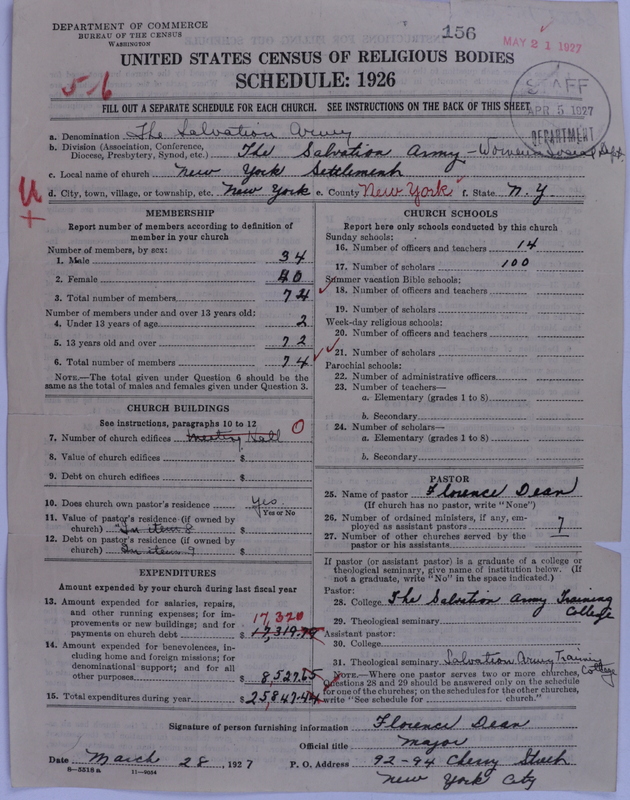 DEPARTMENT OF COMMERCE
BUREAU OF THE CENSUS
WASHINGTON
156
MAY 21 1927
UNITED STATES CENSUS OF RELIGIOUS BODIES
SCHEDULE: 1926
5-16
STAFF
APR. 5 1927
DEPARTMENT
FILL OUT A SEPARATE SCHEDULE FOR EACH CHURCH. SEE INSTRUCTIONS ON THE BACK OF THIS SHEET
a. Denomination The Salvation Army
b. Division (Association, Conference, Diocese, Presbytery, Synod, etc.) The Salvation Army - Women's Social Dept.
c. Local name of church New York Settlement
d. City, town, village, or township, etc. New York e. County New York f. State N. Y.
MEMBERSHIP
Report number of members according to definition of
member in your church
Number of members, by sex:
1. Male 34
2. Female 40
3. Total number of members 74
Number of members under and over 13 years old:
4. Under 13 years of age 2
5. 13 years old and over 72
6. Total number of members 74
NOTE.—The total given under Question 6 should be the
same as the total of males and females given under Question 3.
CHURCH BUILDINGS
See instructions, paragraphs 10 to 12
7. Number of church edifices meeting Hall 0
8. Value of church edifices $
9. Debt on church edifices $
10. Does church own pastor's residence yes
Yes or No
11. Value of pastor's residence (if owned by
church) "In item 8 $
12. Debt on pastor's residence (if owned by
church) In item 9 $
EXPENDITURES
Amount expended by your church during last fiscal year
13. Amount expended for salaries, repairs,
and other running expenses; for im-
provements or new buildings; and for
payments on church debt $ 17,319.79
17,320
14. Amount expended for benevolences, in-
cluding home and foreign missions; for
denominational support; and for all
other purposes $ 8,527.65
15. Total expenditures during year $ 25,847.44
CHURCH SCHOOLS
Report here only schools conducted by this church
Sunday schools:
16. Number of officers and teachers 14
17. Number of scholars 100
Summer vacation Bible schools:
18. Number of officers and teachers
19. Number of scholars
Week-day religious schools:
20. Number of officers and teachers
21. Number of scholars
Parochial schools:
22. Number of administrative officers
23. Number of teachers—
a. Elementary (grades 1 to 8)
b. Secondary
24. Number of scholars—
a. Elementary (grades 1 to 8)
b. Secondary
PASTOR
25. Name of pastor Florence Dean
(If church has no pastor, write "None")
26. Number of ordained ministers, if any, em-
ployed as assistant pastors 7
27. Number of other churches served by the
pastor or his assistants
If pastor (or assistant pastor) is a graduate of a college or
theological seminary, give name of institution below. (If
not a graduate, write "No" in the space indicated.)
Pastor:
28. College The Salvation Army Training College
29. Theological seminary
Assistant pastor:
30. College
31. Theological seminary Salvation Army Training College
NOTE.—Where one pastor serves two or more churches,
Questions 28 and 29 should be answered only on the schedule
for one of the churches; on the schedules for the other churches,
write "See schedule for church."
Signature of person furnishing information Florence Dean
Official title Major
Date March 28, 1927 P. O. Address 92-94 Cherry Street
New York City
8—5518 a 11—9054